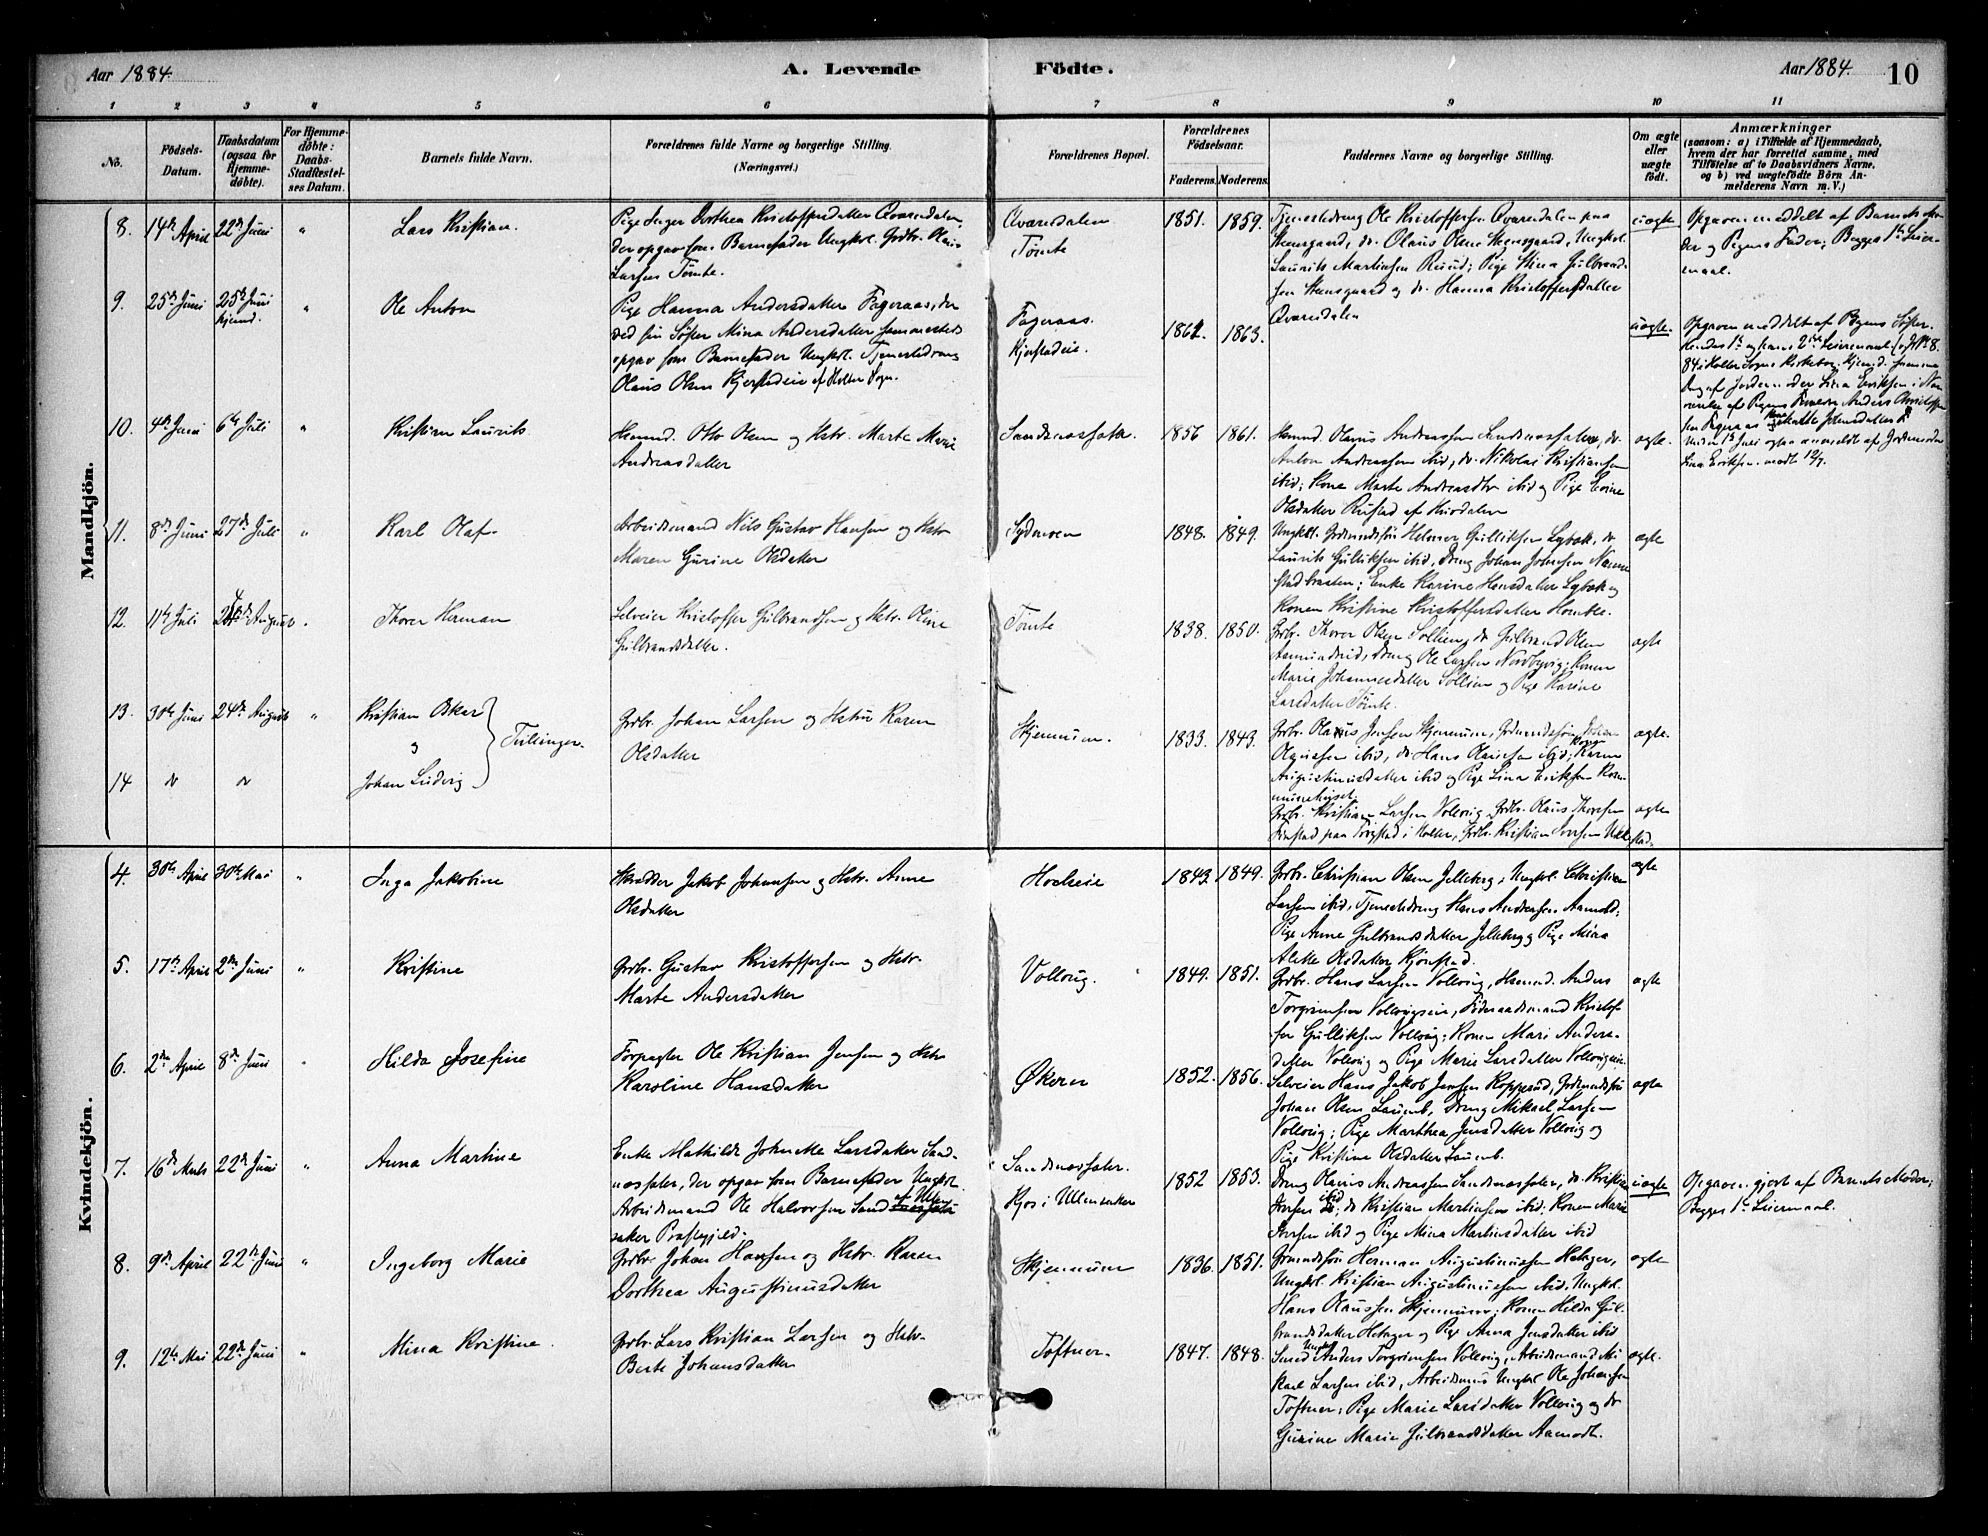 Aar 1884.
A. Levende Födte.
Aar 1884.
10
1 2 3 4 5 6 7 8 9 10 11
No.
Födsels-Datum.
Daabsdatum (ogsaa for Hjemme-döbte).
For Hjemme-döbte: Daabs-Stadfestel-ses Datum.
Barnets fulde Navn.
Forældrenes fulde Navne og borgerlige Stilling.
(Næringsvei.)
Forældrenes Bopæl.
Forældrenes Födselsaar.
Faderens. Moderens.
Faddernes Navne og borgerlige Stilling.
Om ægte eller uægte födt.
Anmærkninger
(saasom: a) i Tilfælde af Hjemmedaab,
hvem der har forrettet samme, med
Tilföielse af to Daabsvidners Navne,
og b) ved uægtefödte Börn An-
melderens Navn m. V.)
Mandkjön.
8. 14de April 22de Juni " Lars Kristian.
Pige Inger Dorthea Kristoffersdatter Qvaresdalen,
der opgav som Barnefader Ungkl. Grdbr. Olaus
Larsen Tömte.
Qvaresdalen
Tömte
1851. 1859.
Tjenestedreng Ole Kristoffersen Qvaresdalen paa
Steensgaard, do. Olaus Olsen Steensgaard, Ungkl.
Laurits Martinsen Ruud; Pige Stina Gulbrand-
sen Steensgaard og do. Hanna Kristoffersdatter
Qvaresdalen
uægte
Opgaven meddelt af Barnets Mo-
der og Pigens Fader; Begges 1ste Leier-
maal.
9. 25de Juni 25de Juni hjemd. " Ole Anton
Pige Hanna Andersdatter Fageraas, der
ved sin Söster Mina Andersdatter sammesteds
opgav som Barnefader Ungkl. Tjenestedreng
Olaus Olsen Kjerstadeie af Holter Sogn.
Fageraas.
Kjerstadeie.
1862 1863.
uægte.
Opgaven meddelt af Pigens Söster.
10. 4de Juni 6te Juli " Kristian Laurits
Husmd. Otto Olsen og Hstr. Marte Marie
Andreasdatter
Sandnæssæter.
1856 1861.
Husmd. Olaus Andreassen Sandnæssæter, do.
Anton Andreassen ibid, do. Nikolai Kristiansen
ibid; Kone Marte Andreasdtr ibid og Pige Evine
Olsdatter Rustad af Hurdalen
ægte.
11. 8de Juni 27de Juli " Karl Olaf
Arbeidsmand Nils Gustav Hansen og Hstr.
Maren Gurine Olsdatter
Sydmoen
1848. 1849.
Ungkl. Grdmandssön Helmer Gulliksen Lybæk, do
Laurits Gulliksen ibid, Dreng Johan Johnsen Nanne-
stadbraaten; Enke Karine Hansdatter Lybæk og
Konen Kristine Kristoffersdatter Homble.
ægte
12. 11te Juli 24de August " Thorer Herman
Selveier Kristoffer Gulbrandsen og Hstr. Oline
Gulbrandsdatter.
Tömte
1838. 1850.
Grbr. Thorer Olsen Sollien, do Gulbrand Olsen
Aasmundrud, Dreng Ole Larsen Nordbyvig; Konen
Marie Johannesdatter Sollien og Pige Karine
Larsdatter Tömte.
ægte
13. 30te Juni 24de August " Kristian Oskar
og
14 do do Johan Ludvig
Tvillinger.
Grdbr. Johan Larsen og Hstru Karen
Olsdatter
Skjennum.
1833. 1843.
Grbr. Olaus Jensen Skjennum, Grdmandssön Johan
Olaussen ibid, do Hans Olaussen ibid; Konen Karen
Augustinusdatter ibid og Pige Lina Eriksen Kom-
munehuset.
ægte.
Grbr. Kristian Larsen Vollvig, Grdbr. Olaus Thorsen
ægte
Kvindekjön.
4. 30te April 30te Mai " Inga Jakobine
Skrædder Jakob Johansen og Hstr. Anne
Olsdatter
Holseie
1843. 1849.
Grbr. Christian Olsen Jelleberg, Ungkl. Christian
Larsen ibid, Tjenestedreng Hans Andersen Aamodt;
Pige Anne Gulbrandsdatter Jelleberg og Pige Mina
Alette Olsdatter Kjönstad.
ægte
5. 17de April 2den Juni " Kristine
Grdbr. Gustav Kristoffersen og Hstr.
Marte Andersdatter
Vollvig.
1849. 1851.
Grdbr. Hans Larsen Vollvig, Husmd. Anders
Torgrimsen Vollvigseie, Föderaadsmand Kristof-
fer Gulliksen Vollvig; Konen Mari Anders-
datter Vollvig og Pige Marie Larsdatter Vollvigeie.
ægte
6. 2den April 8de Juni " Hilda Josefine
Forpagter Ole Kristian Jensen og Hstr
Karoline Hansdatter
Økern
1852. 1856.
Selveier Hans Jakob Jensen Kopperud, Grdmandssön
Johan Olsen Laumb, Dreng Mikael Larsen
Vollvig; Pige Marthea Jensdatter Vollvig og
Pige Kristine Olsdatter Laumb.
ægte
7. 16de Marts 22de Juni " Anna Martine
Enke Mathilde Johnette Larsdatter Sand-
næssæter, der opgav som Barnefader Ungkl.
Arbeidsmand Ole Halvorsen Sand af Ullen-
saker Præstegjeld.
Sandnæssæter.
Kjos i Ullensaker
1852 1853.
Dreng Olaus Andreassen Sandnæssæter, do. Kristian
Iversen ibid; do Kristian Martinsen ibid; Konen Marie
Iversen ibid og Pige Mina Martinsdatter ibid
uægte
Opgaven gjort af Barnets Moder;
Begges 1ste Leiermaal.
8. 9de April 22de Juni " Ingeborg Marie
Grdbr. Johan Hansen og Hstr. Karen
Dorthea Augustinusdatter
Skjennum
1836. 1851.
Grmandssön Herman Augustinussen Helager,
Ungkl. Kristian Augustinussen ibid. Ungkl.
Hans Olaussen Skjennum; Konen Hilda Gul-
brandsdatter Helager og Pige Anna Jensdatter ibid
ægte
9. 12te Mai 22de Juni " Mina Kristine.
Grdbr. Lars Kristian Larsen og Hstr.
Berte Johansdatter
Toftner.
1847. 1848.
Smed Ungkl Anders Torgrimsen Vollvig, Arbeidsmand Mi-
kael Larsen ibid, Arbeidsmd Ungkl Ole Johansen
Toftner; Pige Marie Larsdatter Vollvig og do
Gurine Marie Gulbrandsdatter Aamodt.
ægte.